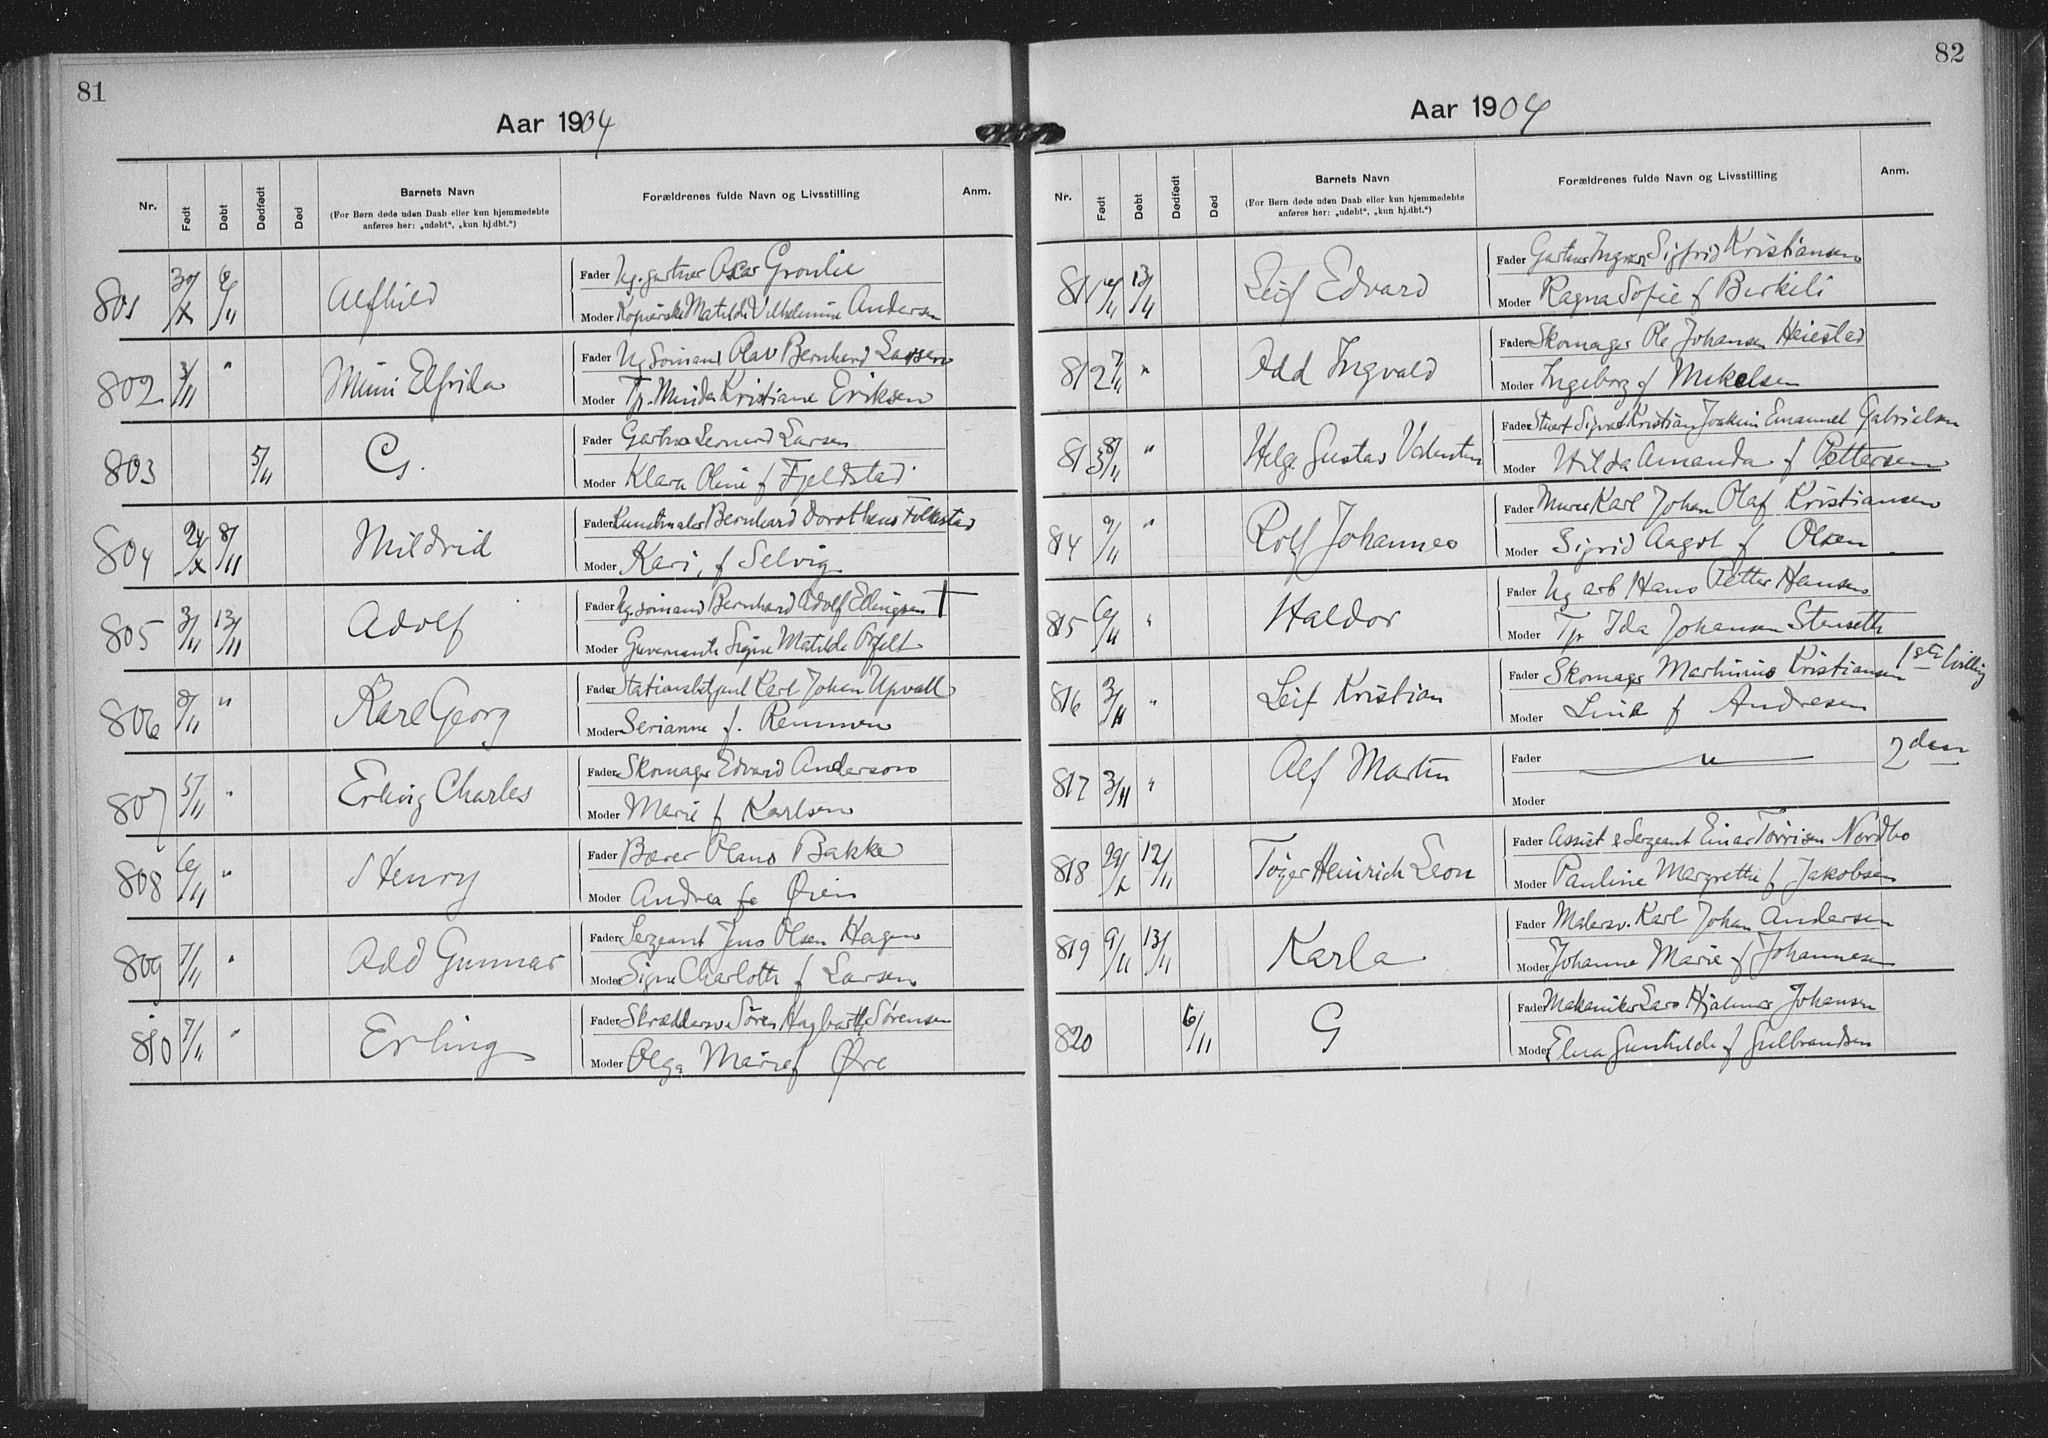 81
Aar 1904
Nr.
Født
Døbt
Dødfødt
Død
Barnets Navn
(For Børn døde uden Daab eller kun hjemmedøbte
anføres her: „udøbt“, „kun hj.dbt.“)
Forældrenes fulde Navn og Livsstilling
Anm.
801 30/X 6/11 Alfhild
Fader Ug. gartner Oskar Gronlie
Moder Matilde Vilhelmine Andersen
802 3/11 " Mimi Elfrida
Fader Ug Sømand Olav Bernhard Larsen
Moder Tp. Minda Kristiane Eriksen
803 5/11 G.
Fader Gartner Leonard Larsen
Moder Klara Oline f Fjeldstad
804 24/X 8/11 Mildrid
Fader Kunstmaler Bernhard Dorotheus Folkestad
Moder Kari, f Selvig
805 3/11 13/11 Adolf
Fader Ug. sømand Bernhard Adolf Ellingsen †
Moder Guvernante Signe Matilde
806 8/11 " Karl Georg
Fader Stationsbetjent Karl Johan Upvall
Moder Serianne f. Remmen
807 5/11 " Erling Charles
Fader Skomager Edvard Anderson
Moder Marie f Karlsen
808 6/11 " Henry
Fader Bærer Olaus Bakke
Moder Andrea f Øien
809 7/11 " Odd Gunnar
Fader Sergeant Jens Olsen Hagen
Moder Signe Charlotte f Larsen
810 7/11 " Erling
Fader Skræddersv. Søren Hagbarth Sørensen
Moder Olga Marie f Øre
82
Aar 1904
Nr.
Født
Døbt
Dødfødt
Død
Barnets Navn
(For Børn døde uden Daab eller kun hjemmedøbte
anføres her: „udøbt“, „kun hj.dbt.“)
Forældrenes fulde Navn og Livsstilling
Anm.
811 6/11 13/11 Leif Edvard
Fader Gartner Ingvar Sigfrid Kristiansen
Moder Ragna Sofie f Birkeli
812 7/11 " Odd Ingvald
Fader Skomager Ole Johansen Heiestad
Moder Ingeborg f Mikelsen
813 8/11 " Helge Gustav Valentin
Fader Stuert Sigvat Kristian Joakim Emanuel Gabrielsen
Moder Hilda Amanda f Pettersen
814 9/11 " Rolf Johannes
Fader Murer Karl Johan Olaf Kristiansen
Moder Sigrid Aagot f Olsen
815 6/11 " Haldor
Fader Ug arb Hans Petter Hansen
Moder Tp Ida Johansen Stenseth
816 3/11 " Leif Kristian
Fader Skomager Martinius Kristiansen 1ste tvilling
Moder Lina f Andresen
817 3/11 " Alf Martin
Fader " 2den
Moder
818 29/X 12/11 Tøger Heinrich Leon
Fader Assist & Sergeant Einar Tørrisen Nordbo
Moder Pauline Margrethe f Jakobsen
819 9/11 13/11 Karla
Fader Malersv. Karl Johan Andersen
Moder Johanne Marie f Johannesen
820 6/11 G
Fader Mekaniker Lars Hjalmar Johansen
Moder Elna Gunhilde f Gulbrandsen